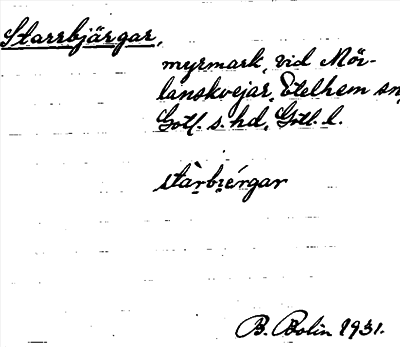 Starrbjärgar,
myrmark, vid Mör-
lanskvejar, Etelhem sn,
Gotl. s. hd, Gotl. l.
starbiérgar
B. Bolin 1931.